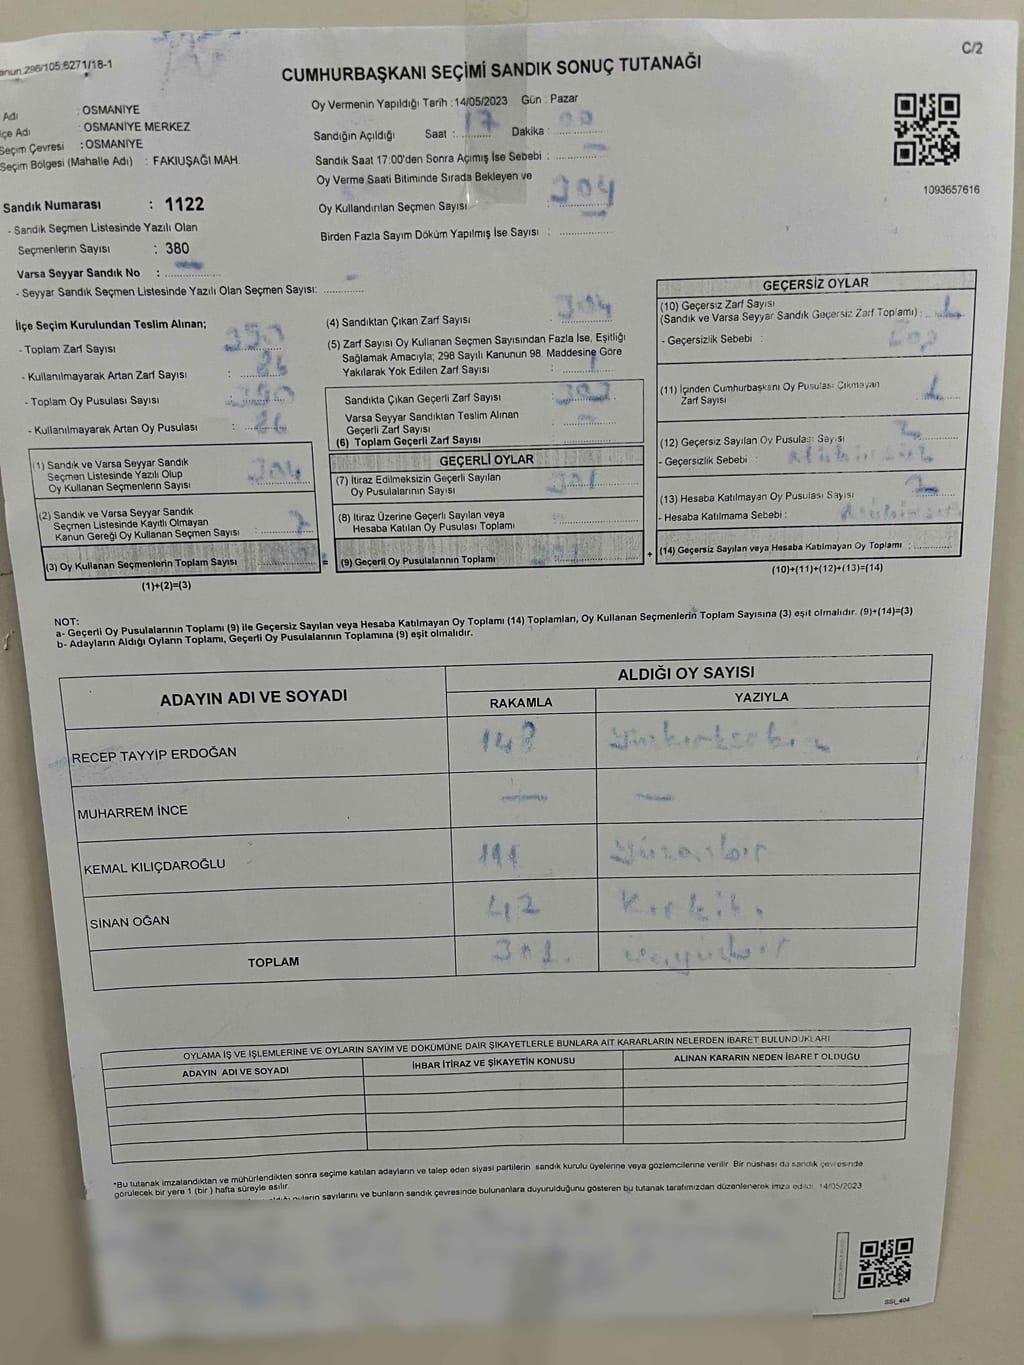 C/2
CUMHURBAŞKANI SEÇİMİ SANDIK SONUÇ TUTANAĞI
anun.296/105;6271/18-1
Adı : OSMANİYE
çe Adı : OSMANİYE MERKEZ
Seçim Çevresi : OSMANİYE
Seçim Bölgesi (Mahalle Adı) : FAKIUŞAĞI MAH.
Sandık Numarası : 1122
- Sandık Seçmen Listesinde Yazılı Olan
Seçmenlerin Sayısı : 380
Varsa Seyyar Sandık No :
- Seyyar Sandık Seçmen Listesinde Yazılı Olan Seçmen Sayısı:
Oy Vermenin Yapıldığı Tarih : 14/05/2023 Gün : Pazar
Sandığın Açıldığı Saat : 17 Dakika : 00
Sandık Saat 17:00'den Sonra Açımış İse Sebebi : -
Oy Verme Saati Bitiminde Sırada Bekleyen ve
Oy Kullandırılan Seçmen Sayısı 304
Birden Fazla Sayım Döküm Yapılmış İse Sayısı :
1093657616
İlçe Seçim Kurulundan Teslim Alınan;
- Toplam Zarf Sayısı : 390
- Kullanılmayarak Artan Zarf Sayısı : 86
- Toplam Oy Pusulası Sayısı : 390
- Kullanılmayarak Artan Oy Pusulası : 86
(1) Sandık ve Varsa Seyyar Sandık
Seçmen Listesinde Yazılı Olup
Oy Kullanan Seçmenlerin Sayısı 304
(2) Sandık ve Varsa Seyyar Sandık
Seçmen Listesinde Kayıtlı Olmayan
Kanun Gereği Oy Kullanan Seçmen Sayısı
(3) Oy Kullanan Seçmenlerin Toplam Sayısı
(1)+(2)=(3)
(4) Sandıktan Çıkan Zarf Sayısı : 304
(5) Zarf Sayısı Oy Kullanan Seçmen Sayısından Fazla İse, Eşitliği
Sağlamak Amacıyla; 298 Sayılı Kanunun 98. Maddesine Göre
Yakılarak Yok Edilen Zarf Sayısı :
Sandıkta Çıkan Geçerli Zarf Sayısı : 303
Varsa Seyyar Sandıktan Teslim Alınan
Geçerli Zarf Sayısı : -
(6) Toplam Geçerli Zarf Sayısı :
GEÇERLİ OYLAR
(7) İtiraz Edilmeksizin Geçerli Sayılan
Oy Pusulalarının Sayısı : 301
(8) İtiraz Üzerine Geçerli Sayılan veya
Hesaba Katılan Oy Pusulası Toplamı
= (9) Geçerli Oy Pusulalarının Toplamı 301
GEÇERSİZ OYLAR
(10) Geçersiz Zarf Sayısı
(Sandık ve Varsa Seyyar Sandık Geçersiz Zarf Toplamı) : 1
- Geçersizlik Sebebi :
(11) İçinden Cumhurbaşkanı Oy Pusulası Çıkmayan
Zarf Sayısı 1
(12) Geçersiz Sayılan Oy Pusulası Sayısı
- Geçersizlik Sebebi :
(13) Hesaba Katılmayan Oy Pusulası Sayısı
- Hesaba Katılmama Sebebi :
+ (14) Geçersiz Sayılan veya Hesaba Katılmayan Oy Toplamı :
(10)+(11)+(12)+(13)=(14)
NOT:
a- Geçerli Oy Pusulalarının Toplamı (9) ile Geçersiz Sayılan veya Hesaba Katılmayan Oy Toplamı (14) Toplamları, Oy Kullanan Seçmenlerin Toplam Sayısına (3) eşit olmalıdır. (9)+(14)=(3)
b- Adayların Aldığı Oyların Toplamı, Geçerli Oy Pusulalarının Toplamına (9) eşit olmalıdır.
ADAYIN ADI VE SOYADI
ALDIĞI OY SAYISI
RAKAMLA YAZIYLA
RECEP TAYYİP ERDOĞAN 148
MUHARREM İNCE — —
KEMAL KILIÇDAROĞLU 111 Yüzonbir
SİNAN OĞAN 42 Kırkiki
TOPLAM 301. Üçyüzbir
OYLAMA İŞ VE İŞLEMLERİNE VE OYLARIN SAYIM VE DÖKÜMÜNE DAİR ŞİKAYETLERLE BUNLARA AİT KARARLARIN NELERDEN İBARET BULUNDUKLARI
ADAYIN ADI VE SOYADI İHBAR İTİRAZ VE ŞİKAYETİN KONUSU ALINAN KARARIN NEDEN İBARET OLDUĞU
*Bu tutanak imzalandıktan ve mühürlendikten sonra seçime katılan adayların ve talep eden siyasi partilerin sandık kurulu üyelerine veya gözlemcilerine verilir. Bir nushası da sandık çevresinde
görülecek bir yere 1 (bir) hafta süreyle asılır.
oyların sayılarını ve bunların sandık çevresinde bulunanlara duyurulduğunu gösteren bu tutanak tarafımızdan düzenlenerek imza edildi. 14/05/2023
SSI_404